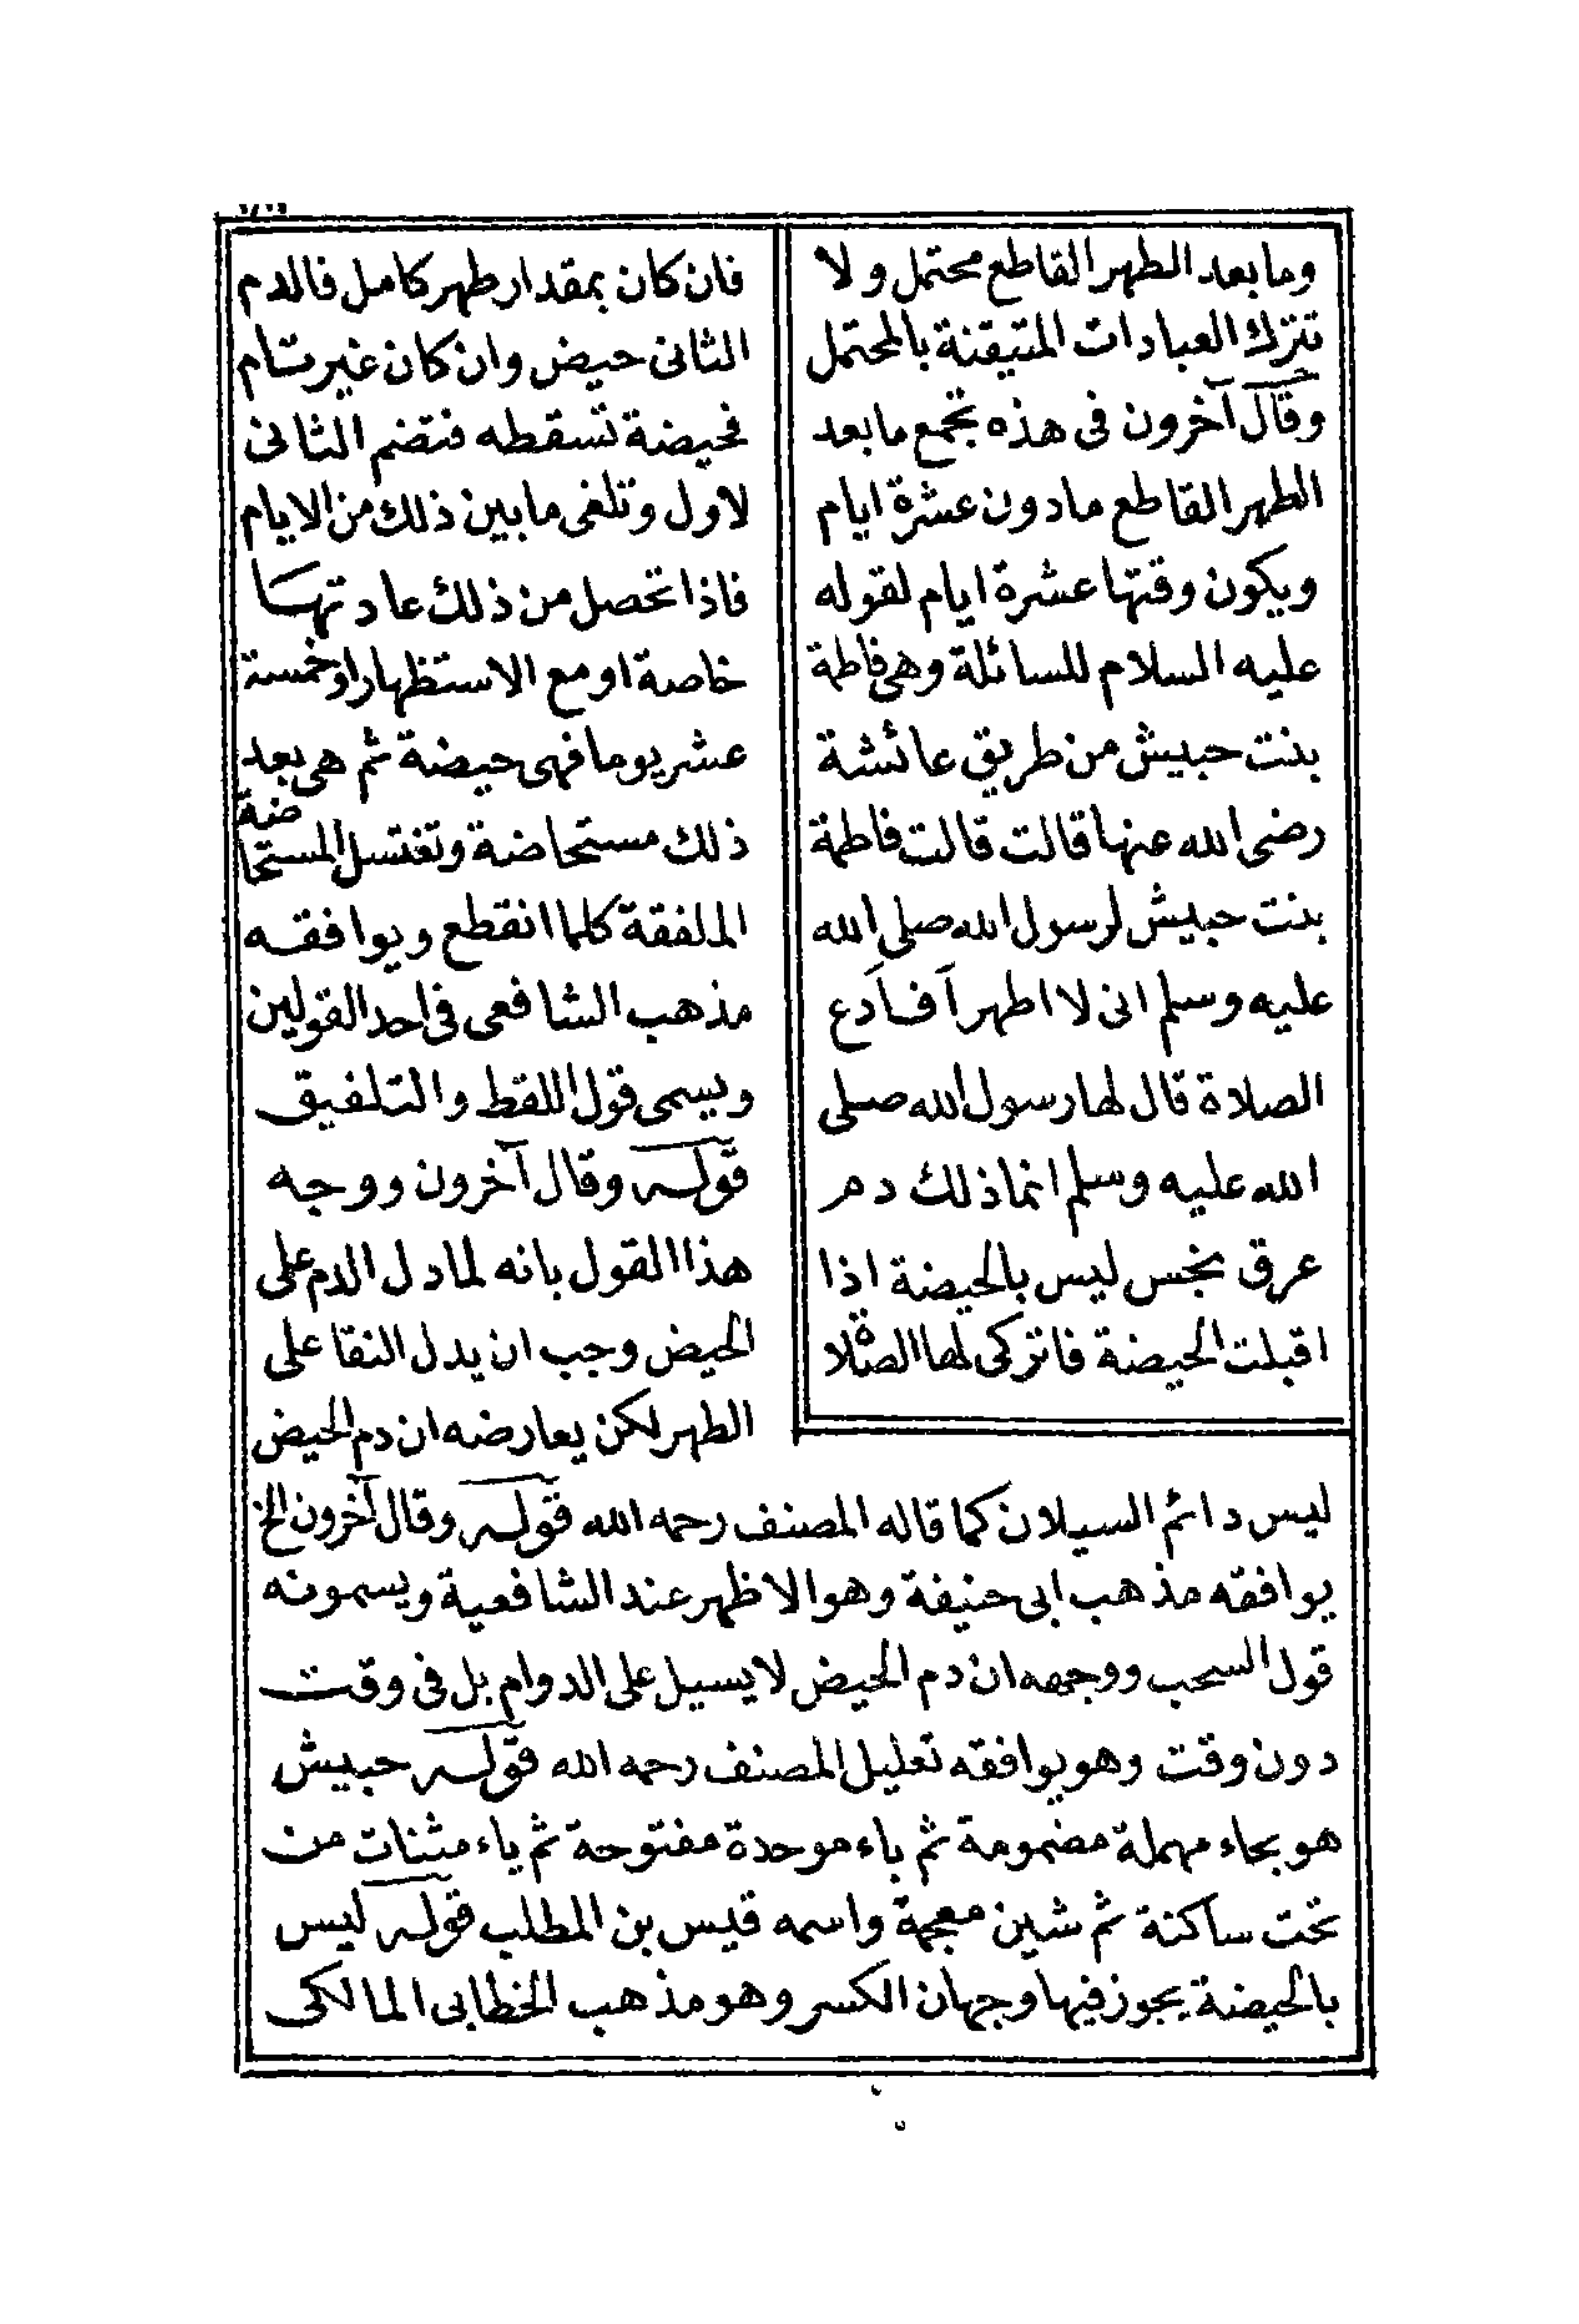 وما بعد الطهر القاطع محتمل ولا
تترك العبادات المتيقنة بالمحتمل
وقال آخرون فى هذه تجمع ما بعد
الطهر القاطع مادون عشرة ايام
ويكون وقتها عشرة ايام لقوله
عليه السلام للسائلة وهى فاطمة
بنت حبيش من طريق عائشة
رضى الله عنها قالت قالت فاطمة
بنت حبيش لرسول الله صلى الله
عليه وسلم انى لا اطهر اَفَاَدع
الصلاة قال لها رسول الله صلى
الله عليه وسلم انما ذلك دم
عرق نجس ليس بالحيضة اذا
اقبلت الحيضة فاتركى لها الصلاة
فان كان بمقدار طهر كامل فالدم
الثانى حيض وان كان غير تام
فحيضة تسقطه فتضم الثانى
لاول وتلغى ما بين ذلك من الايام
فاذا تحصل من ذلك عادتها
خاصة او مع الاستظهار او خمسة
عشر يوما فهى حيضة ثم هى بعد
ذلك مستحاضة وتغتسل المستحاضة
الملفقة كلما انقطع ويوافقه
مذهب الشافعى فى احد القولين
ويسمى قول اللقط والتلفيق
قوله وقال آخرون ووجه
هذا القول بانه لمادل الدم على
الحيض وجب ان يدل النقا على
الطهر لكن يعارضه ان دم الحيض
ليس دائم السيلان كما قاله المصنف رحمه الله قوله وقال آخرون الخ
يوافقه مذهب ابى حنيفة وهو الاظهر عند الشافعية ويسمونه
قول السحب ووجهه ان دم الحيض لا يسيل على الدوام بل فى وقت
دون وقت وهو يوافقه تعليل المصنف رحمه الله قوله حبيش
هو بحاء مهملة مضمومة ثم باء موحدة مفتوحة ثم ياء مثنات من
تحت ساكنة ثم شين معجمة واسمه قيس بن المطلب قوله ليس
بالحيضة يجوز فيها وجهان الكسر وهو مذهب الخطابى المالكى